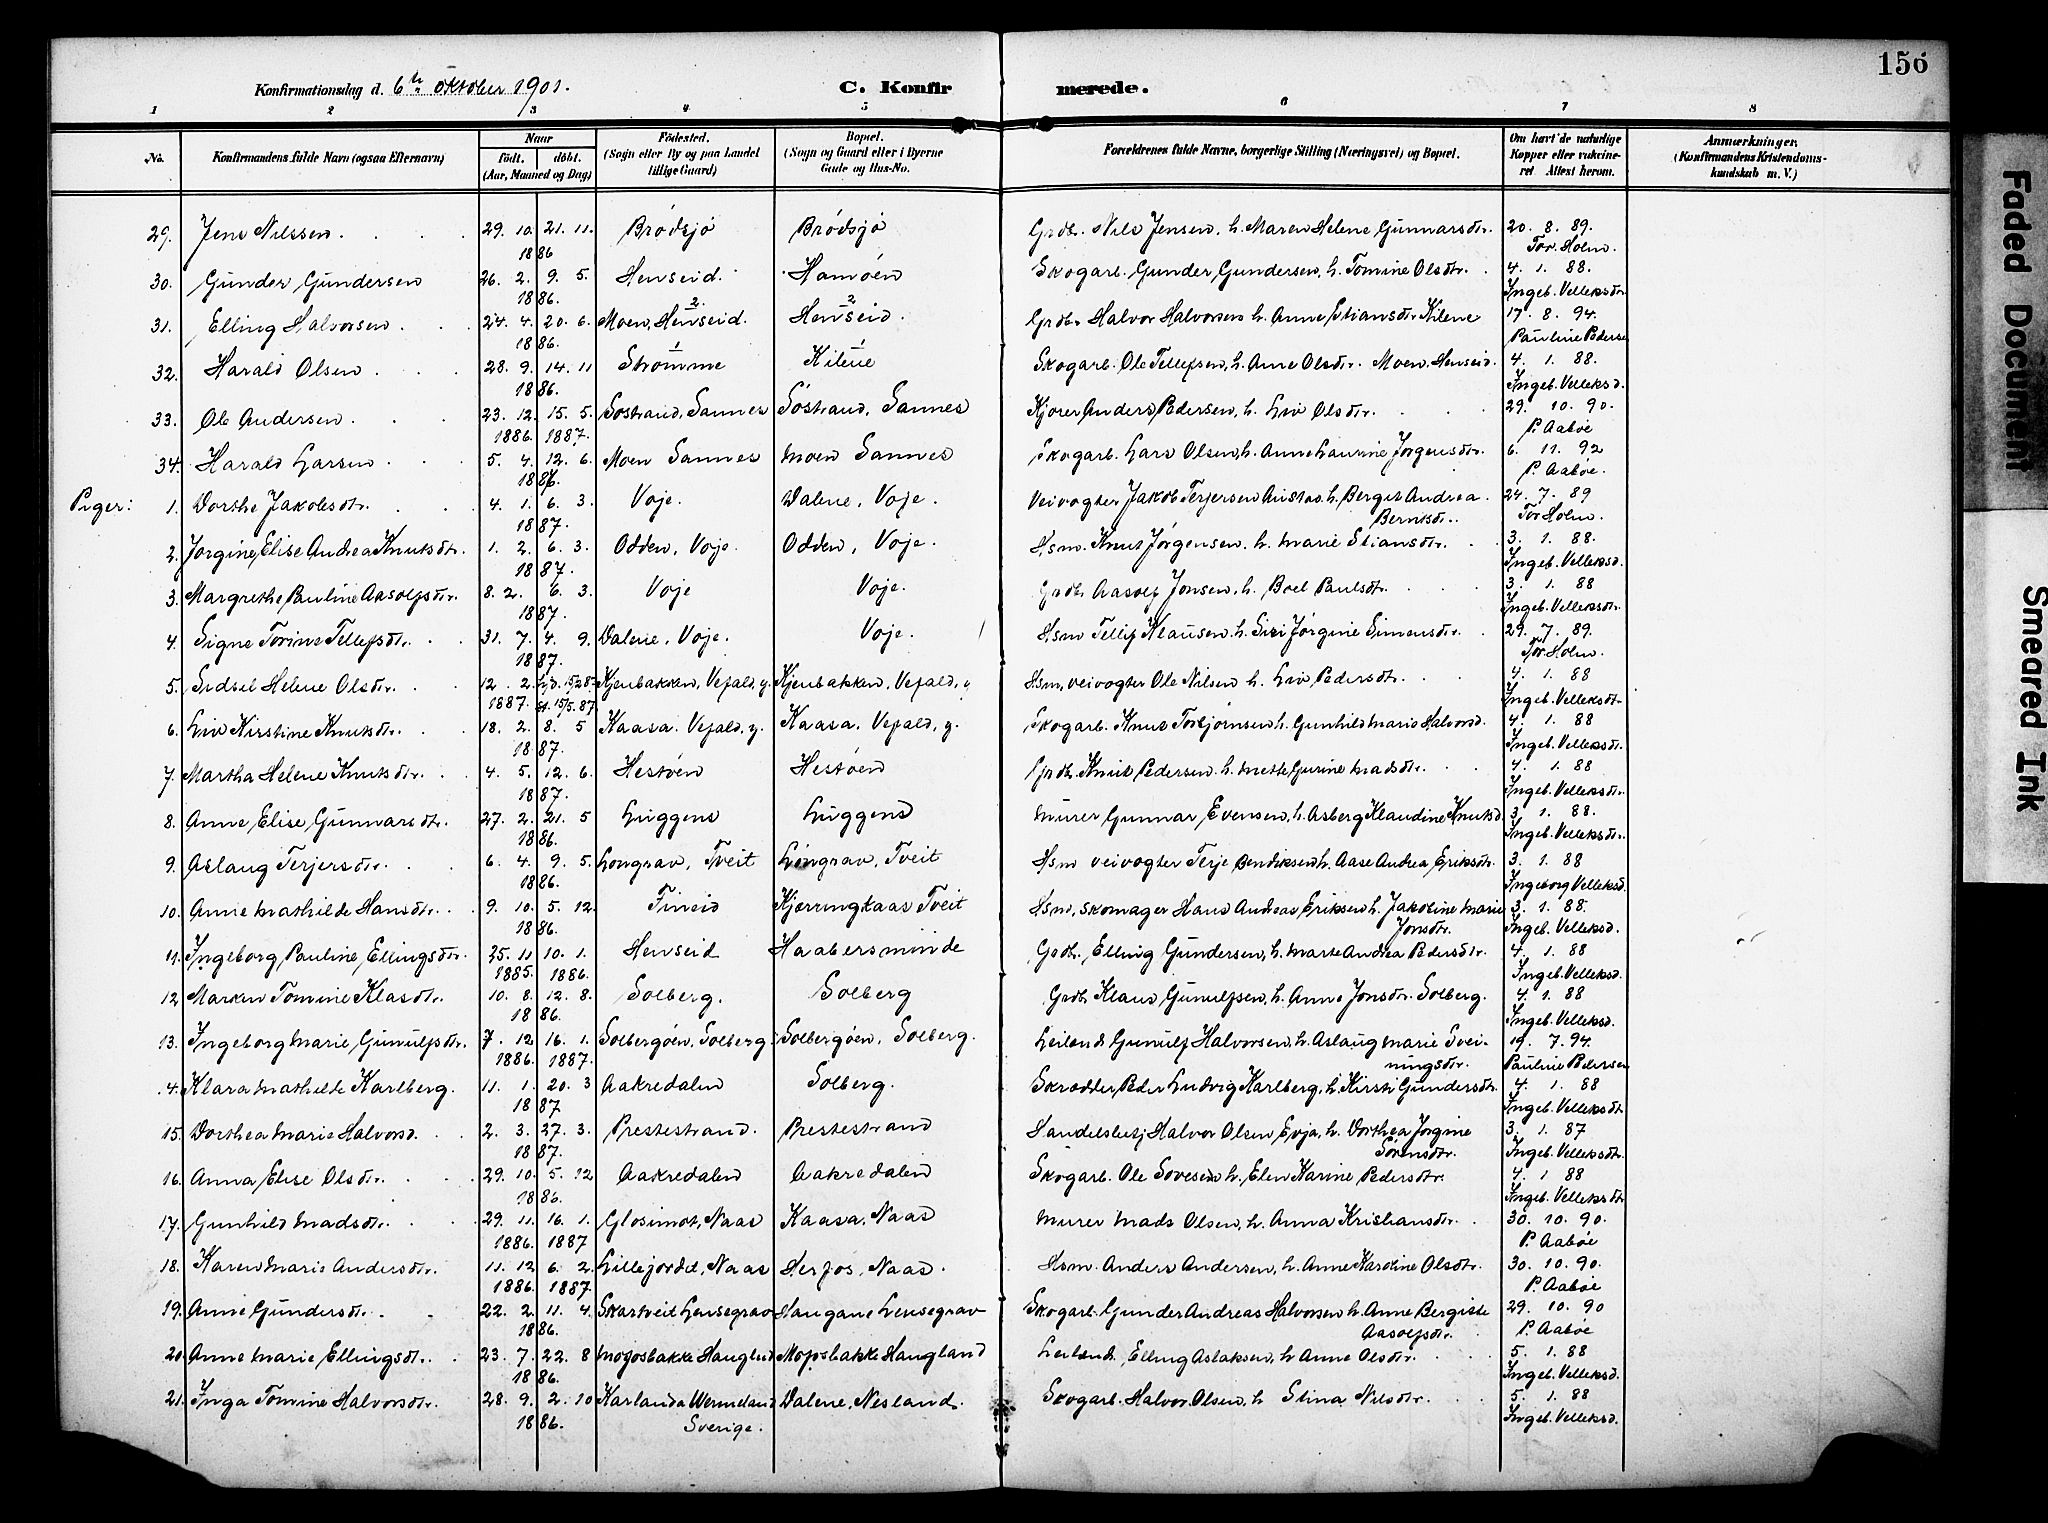 156
Konfirmationsdag d. 6te oktober 1901. C. Konfirmerede.
1 2 3 4 5 6 7 8
No. Konfirmandens fulde Navn (ogsaa Efternavn) Naar födt. döbt. (Aar, Maaned og Dag) Födested. (Sogn eller By og paa Landet tillige Gaard) Bopæl. (Sogn og Gaard eller i Byerne Gade og Hus-No. Forældrenes fulde Navne, borgerlige Stilling (Næringsvei) og Bopæl. Om havt de naturlige Kopper eller vakcineret Attest herom. Anmærkninger. (Konfirmandens Kristendomskundskab m. V.)
29. Jens Nilssen. 29. 10. 21. 11. Brödsjö Brödsjö Grdb. Nils Jensen, h. Maren Helene Gunnarsdtr. 20. 8. 89.
1886 Tor. Holm.
30. Gunder Gundersen 26. 2. 9. 5. Henseid. Hamöen Skogarb. Gunder Gundersen, h. Tomine Olsdtr. 4. 1. 88.
1886. Ingeb. Velleksdtr.
31. Elling Halvorsen. 24. 4. 20. 6. Moen, Henseid. 2 Henseid. 2 Grdbr Halvor Halvorsen h. Anne Stiansdtr Kilene 17. 8. 94.
1886. Pauline Pederse
32. Harald Olsen 28. 9. 14. 11 Strömme 1 Kilene 1 Skogarb. Ole Tellefsen, h. Anne Olsdtr. Moen, Henseid. 4. 1. 88.
1886. Ingeb. Velleksd.
33. Ole Andersen 23. 12. 15. 5. Söstrand, Sannes Söstrand, Sannes Kjörer Anders Pedersen, h. Liv Olsdtr. 29. 10. 90.
1886. 1887. P. Aaböe
34. Harald Larsen 5. 4. 12. 6. Moen Sannes Moen Sannes Skogarb. Lars Olsen, h. Anne Laurine Jörgensdtr. 6. 11. 92
1886. P. Aaböe.
Piger: 1. Dorthe Jakobsdtr. 4. 1. 6. 3. Voje. Dalene, Voje. Veivogter Jakob Terjersen h. Bergit Andrea 24. 7. 89
1887. Berntsdtr. Tor Holm.
2. Jörgine Elise Andrea Knutsdtr. 1. 2. 6. 3. Odden, Voje. Odden, Voje. Hsm. Knut Jörgensen. h. Marie Stiansdtr. 3. 1. 88.
1887. Ingeb. Velleksd.
3. Margrethe Pauline Aasolfsdtr. 8. 2. 6. 3. Voje Voje. Grdb. Aasolf Jonsen, h. Boel Paulsdtr. 3. 1. 88
1887. Ingeb. Velleksdtr.
4. Signe Torine Tellefsdtr. 31. 7. 4. 9. Dalene, Voje. Voje. Hsm Tellef Klausen. h. Siri Jörgine Simensdtr. 29. 7. 89.
1887. Tor. Holm.
5. Sidsel Helene Olsdtr. 12. 2. Kjenbakken, Vefald, y. Kjenbakken, Vefald, y Hsm, veivogter Ole Nilsen h. Liv Pedersdtr. 4. 1. 88
1887. 15/5. 87. Ingeb. Velleksdtr.
6. Liv Kirstine Knutsdtr. 18. 2. 8. 5 Kaasa. Vefald, y. Kaasa. Vefald, y. Skogarb. Knut Torbjörnsen h. Gunhild Marie Halvorsd. 4. 1. 88
1887. Ingeb. Velleksdtr.
7. Martha Helene Knutsdtr. 4. 5. 12. 6. Hestöen Hestöen Grdb. Knut Pedersen. h. Mette Gurine Madsdtr. 4. 1. 88
1887. Ingeb. Velleksdtr.
8. Anne Elise Gunnarsdtr. 27. 2. 21. 5 Luggens Luggens Murer Gunnar Evensen, h. Asberg Klaudine Knutsd. 3. 1. 88.
1886. Ingeb. Velleksdtr.
9. Aslaug Terjersdtr. 6. 4. 9. 5. Longrav, Tveit Longrav, Tveit Hsm veivogter Terje Bendiksen h. Aase Andrea Eriksdtr. 3. 1. 88
1886. Ingeborg Velleksd.
10. Anne Mathilde Hansdtr. 9. 10. 5. 12. Tineid Kjerringkaas Tveit Hsm, skomager Hans Andreas Eriksen h. Jakobine Marie 3. 1. 88.
1886. Jonsdtr. Ingeb. Velleksd.
11. Ingeborg Pauline Ellingsdtr. 25. 11 10. 1. Henseid Haabersminde Grdb. Elling Gundersen, h. Marte Andrea Pedersdtr. 4. 1. 88
1885. 1886. Ingeb. Velleksd.
12 Maren Tomine Klasdtr. 10. 8. 12. 8. Solberg. Solberg Grdb Klaus Gunulfsen, h. Anne Jonsdtr. Solberg. 4. 1. 88
1886. Ingeb. Velleksd.
13. Ingeborg Marie Gunulfsdtr. 7. 12 16. 1. Solbergöen, Solberg. Solbergöen, Solberg. Leilend. Gunulf Halvorsen, h. Aslaug Marie Svei- 19. 7. 94.
1886. 1887. ningsdtr. Pauline Pedersen
.4. Klara Mathilde Karlberg. 11. 1. 20. 3 Aakredalen Solberg. Skrædder Peder Ludvig Karlberg, h. Kirsti Gundersdtr. 4. 1. 88
1887 Ingeb. Velleksdtr.
15. Dorthea Marie Halvorsd. 2. 3. 27. 3. Prestestrand. Prestestrand Handelsbetj Halvor Olsen Evja, h. Dorthea Jörgine 3. 1. 87
1887. Sörensdtr. Ingeb. Velleksdtr.
16. Anna Elise Olsdtr. 29. 10. 5. 12 Aakredalen Aakredalen Skogarb. Ole Sovesen h. Elen Karine Pedersdtr. 4. 1 88
1886. Ingeb. Velleksdtr.
17. Gunhild Madsdtr. 29. 11. 16. 1. Glosimot, Naas Kaasa, Naas Murer Mads Olsen, h. Anna Kristiansdtr. 30. 10. 90.
1886. 1887 P. Aaböe
18. Karen Marie Andersdtr. 11. 12 6. 2. Lillejordet, Naas Herfos, Naas. Hsm. Anders Andersen, h. Anne Karoline Olsdtr. 30. 10. 90.
1886. 1887. P. Aaböe
19. Anne Gundersdtr. 22. 2. 11. 4. Skartveit Lensegrav Haugane Lensegrav Skogarb. Gunder Andreas Halvorsen h. Anne Bergitte 29. 10. 90
1886. Aasolfsdtr. P. Aaböe
20. Anne Marie Ellingsdtr. 23. 7. 22. 8 Mojosbakke Haugland Mojosbakke Haugland Leilend. Elling Aslaksen, h. Anne Olsdtr. 5. 1. 88
1886. Ingeb. Velleksd.
21. Inga Tomine Halvorsdtr. 28. 9. 2. 10 Karlanda Wermeland Dalene, Nesland. Skogarb. Halvor Olsen, h Stina Nilsdtr. 5. 1. 88
1886. Sverige. Ingeb. Velleksd.
Faded Document
Smeared Ink